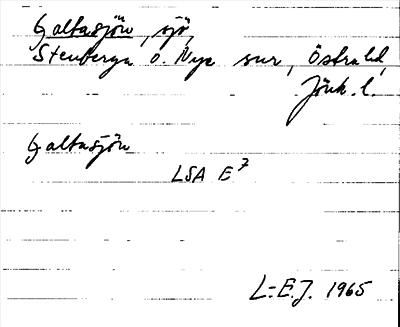 Galtasjön, sjö,
Stenberga o. Nye snr, Östra hd,
Jönk. l.
Galtasjön
LSA E7
L:E.J. 1965